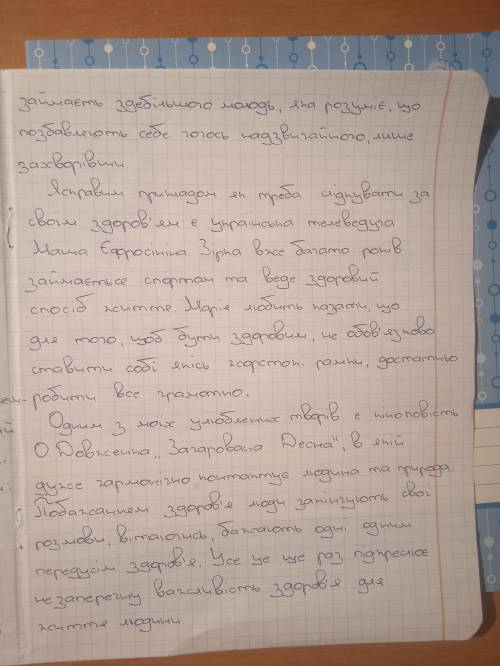 займають здебільшого молодь, яка розуміє, що
позбавляють себе чогось надзвичайного, лише
захворівши.
Яскравим прикладом як треба слідкувати за
своїм здоров'ям є українська телеведуча
Маша Єфросініна Зірка вже багато років
займається спортом та веде здоровий
спосіб життя Марія любить казати, що
для того, щоб бути здоровим, не обов'язково
ставити собі якісь жорсткі рамки, достатньо
робити все грамотно.
Одним з моїх улюблених творів є кіноповість
О Довженка „Зачарована Десна", в якій
дуже гармонічно контактує людина та природа.
Побажанням здоров'я люди закінчують свої
розмови, вітаючись, бажають одні одним
передусім здоров'я. Усе це ще раз підкреслює
незаперечну важливість здоров'я для
життя людини